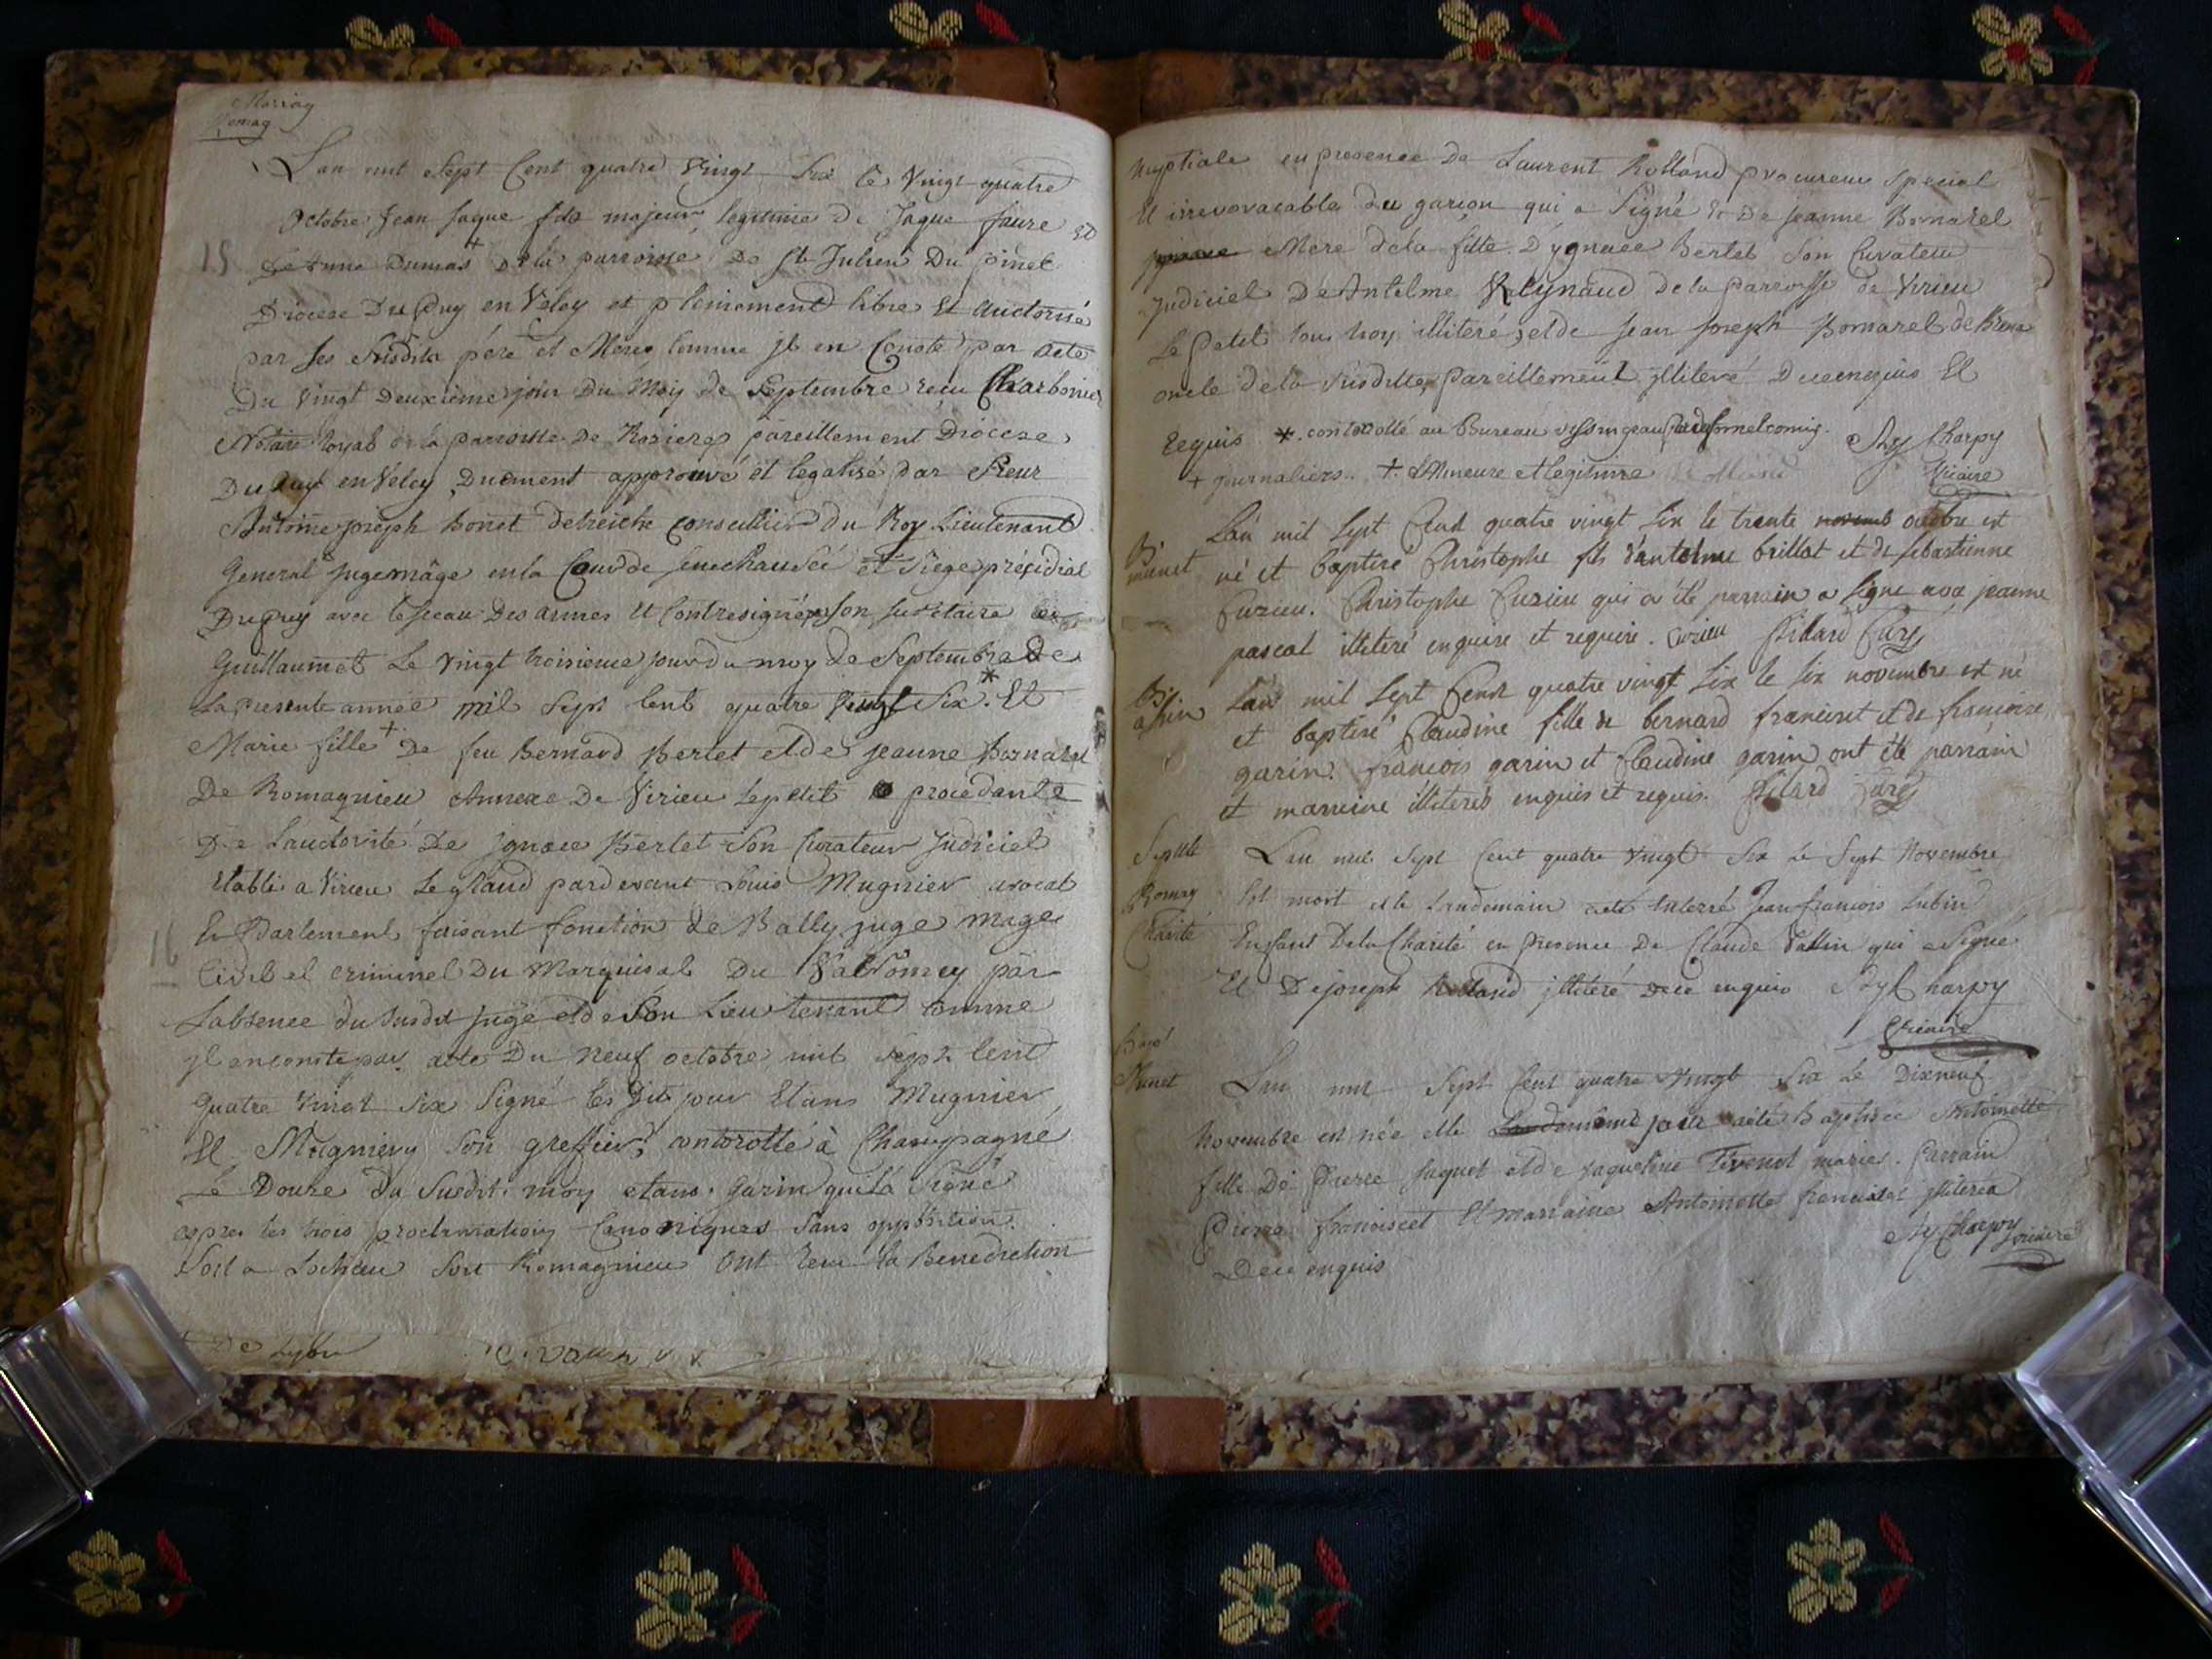 Mariag
Romag
Lan mil Sept Cent quatre Vingt Six le Vingt quatre
Octobre Jean Jaque fils majeur legitime de Jaque faure Et
15 de Anne Dumas + de la parroisse De St Julien Du pinet
Diocese Du Puy en Veley et pleinement libre Et auctorisé
par ses Susdits pére et Mere comme jl en Conste par acte
Du Vingt Deuxieme jour Du Moy de Septembre recu Charbonier
Notaire Royal de la parroisse De Rozieres pareillement Diocese
Du Puy en Veley, Duement approuvé et legalisé par Sieur
Antoine joseph bonet detreiche Conseillier du Roy Lieutenant
General juge mâge en la Cour de senechaussée et Siège présidial
Du Puy avec le Sceau Des armes Et Contresigné par Son Secretaire
Guillaumet Le Vingt troisieme jour du moy de Septembre De
La presente année mil Sept Cent quatre Vingt Six *. Et
Marie fille + De feu Bernard Bertet et de jeanne Bornarel
De Romagnieu Annexe De Virieu Le petit procedante
De Lauctorité De jgnace Bertet Son Curateur Judiciel
Etabli a Virieu Le grand pardevant Louis Mugnier avocat
16 En Parlement faisant fonction de Bally juge mage
Civil et Criminel Du Marquisat Du Valromey par
Labsence du Susdit juge et de Son Lieutenant comme
jl en conste par acte Du Neuf octobre mil Sept Cent
Quatre Vingt Six Signé les Dits jour Et ans Mugnier
Et Mugniery Son greffier, controllé à Champagne
Le Douze du Susdit moy et ans. Garin qui la Signé
appres les trois proclamations Canoniques Sans opposition.
Soit a Lochieu Soit Romagnieu Ont recu la Benediction
De Lyon
Nuptiale en presence De Laurent Rolland procureur Special
Et irrevovacable du garçon qui a Signé Et De jeanne Bornarel
Mere de la fille D'ygnace Bertet Son Curateur
judiciel De Antelme Reynaud de la parroisse de Virieu
Le Petit tous troy illiteré, et de Jean joseph Bornarel de
oncle de la Susditte, pareillement jlliteré Dece enquis Et
Requis *. controllé au Bureau dissingeau
+ journaliers. +. Mineure et legitime Rolland
Rey Charpy
Vicaire
B.
munet
Lan mil Sept Cent quatre vingt Six le trente novemb octobre est
né et baptisé Christophe fils d'antelme brillat et de Sebastienne
Cuzieu. Christophe Cuzieu qui a été parrain a signé avec jeanne
pascal illiteré enquise et requise. Cuzieu Fillard Curé
B.
assin
Lan mil Sept Cent quatre vingt Six le Six novembre est né
et baptisé Claudine fille de bernard franciset et de francoise
garin. francois garin et Claudine garin ont été parrain
et marreine illiterés enquis et requis. Fillard Curé
Sepulte
Romag
Charité
Lan mil Sept Cent quatre Vingt Six Le Sept Novembre
Est mort et le Landemain a eté Enterré Jean francois Lubin
Enfant De la Charité en Presence De Claude Vallin qui a Signé
Et De joseph Rolland jlliteré Dece enquis Rey Charpy
Vicaire
Bapt
Munet
Lan mil Sept Cent quatre Vingt Six Le Dixneuf
Novembre est née et le Landemain a eté Baptisée Antoinette
fille De Pierre Juquet et de Jaqueline Tivenet mariés. Parrain
Pierre franciscet Et marraine Antoinette franciscet jlliteréa
Dece enquis
Rey Charpy Vicaire